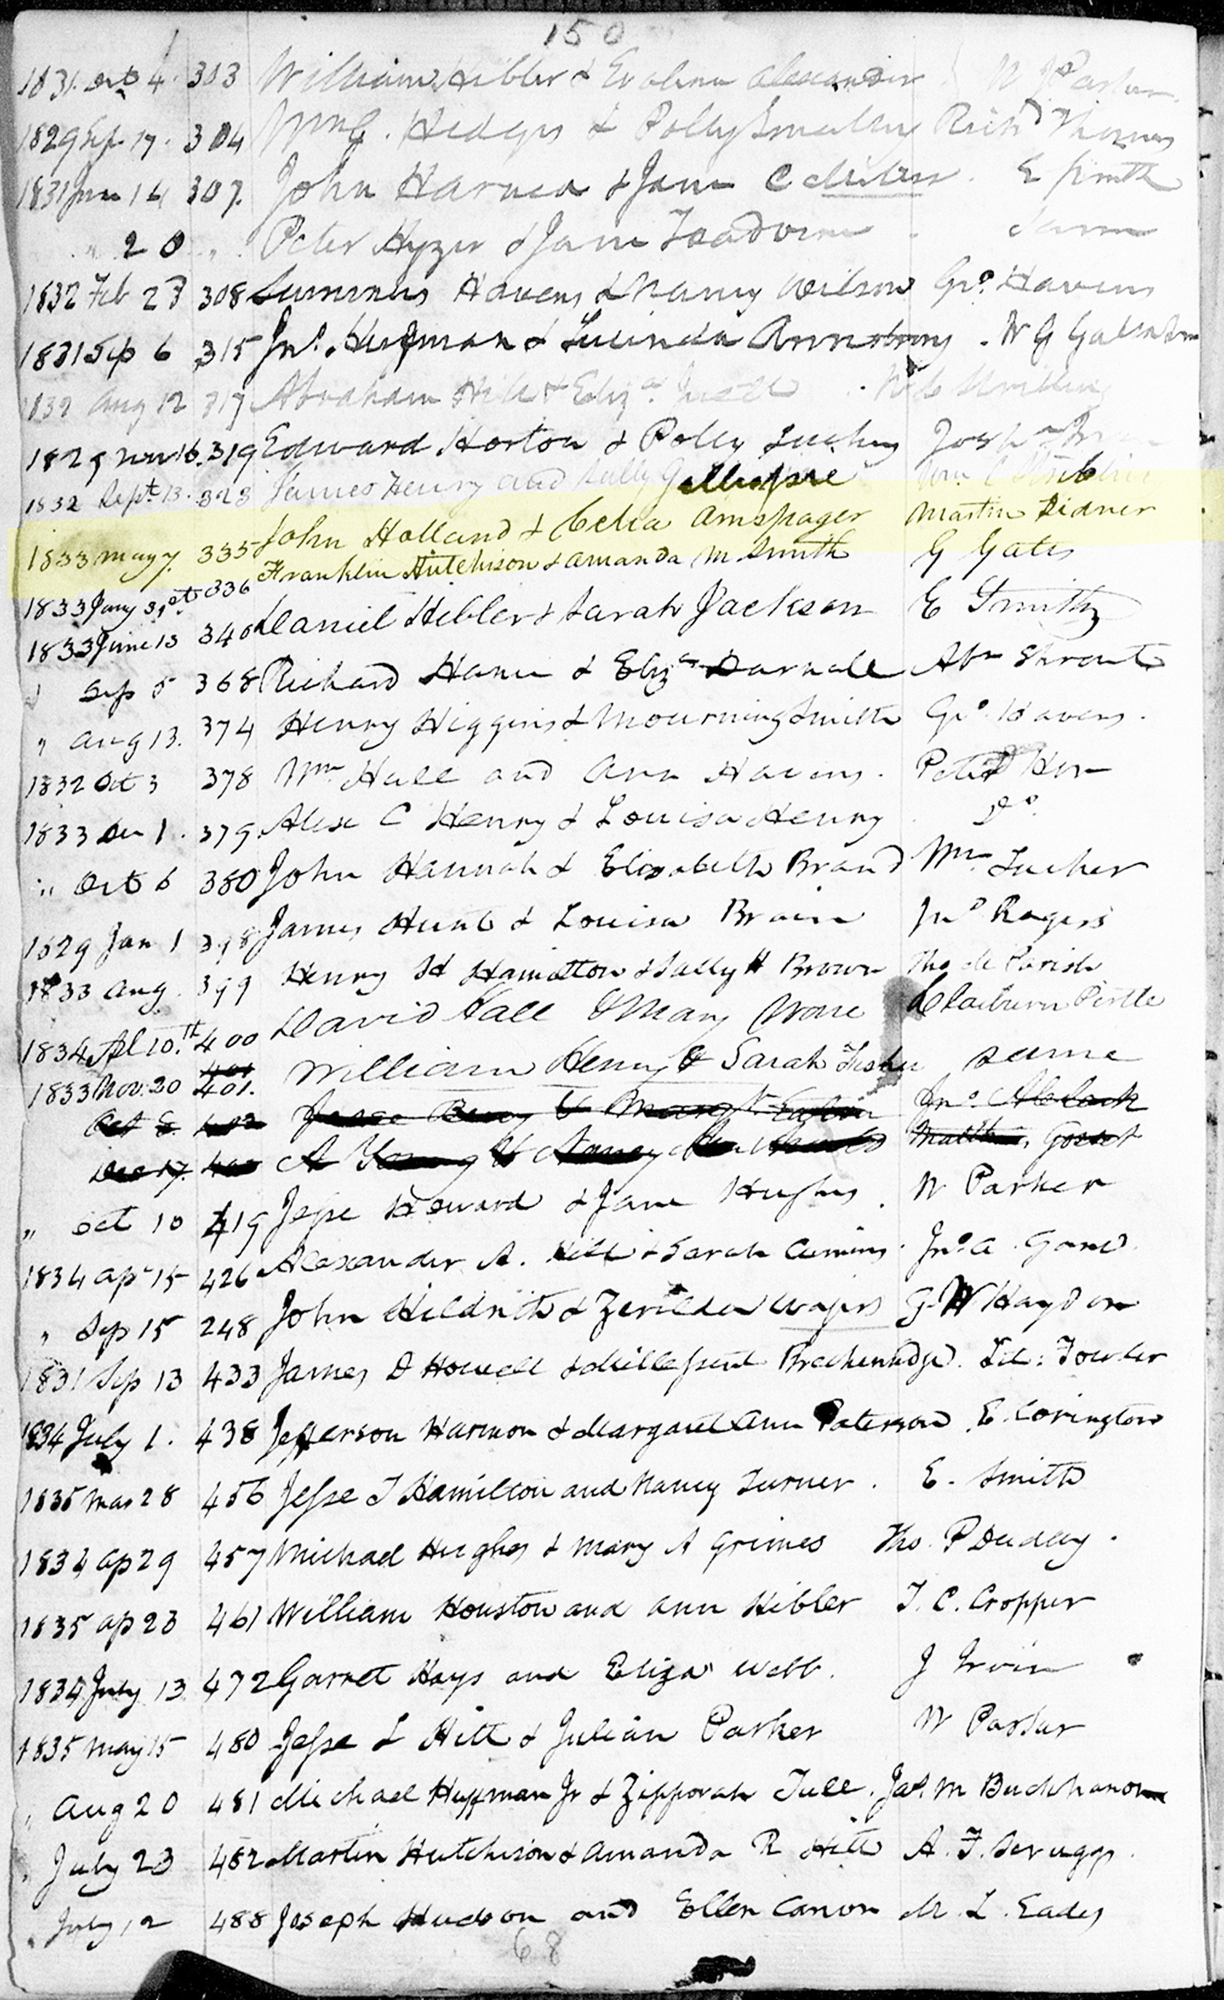 150
1831 Oct 4 303 William Hibler & Evalina Alexander W Parker
1829 Sep. 17. 304 Wm G. Hedges & Polly Smaller Richd Thomas
1831 June 14 307. John Harned & Jane C E Smith
" 20 " Peter Hyzer & Jane Toadvine Same
1832 Feb 23 308 Summers Havens & Nancy Wilson Geo. Havens
1831 Sep 6 315 Jno. Huffman & Lucinda Armstrong W G
1832 Aug 12 317 Abraham Hill & Eliza
1829 Nov 16. 319 Edward Horton & Polly
1832 Sept. 13. 323 James Henry and Sally Gillispie Wm.
1833 May 7. 335 John Holland & Celia Amspager Martin Sidner
1833 Jany 31st 336 Franklin Hutchison & Amanda M Smith G Gates
1833 June 13 340 Daniel Hibler & Sarah Jackson E Smith
" Sep 5 368 Richard Hanu & Eliza Darnall Abm Shrout
" Aug 13. 374 Henry Higgins & Mourning Smith Geo. Havens.
1832 Oct 3 378 Wm Hull and Ann Havens. Peter Hon
1833 Dec 1. 379 Alex C Henry & Louisa Henry Do.
" Oct 6 380 John Hannah & Elizabeth Brand Wm Tucker
1829 Jan 1 398 James Hunt & Louisa Brain Jno Rogers
1833 Aug 399 Henry H Hamilton & Sally H Brown Tho. M Parish
1834 Apl 10.th 400 David Hall & Mary Claiburn Pirtle
1833 Nov. 20 401. William Henry & Sarah same
Oct 8 402 Jesse Berry & Margt Jno. A
Dec 17. A Young & Nancy Matthew, Gosset
" Oct 10 419 Jesse Howard & Jane Hughes. W Parker
1834 Ap 15 426 Alexander A. Hill & Sarah Cumins. Jno. A. Gano
" Sep 15 248 John Hildrith & Zerilda Wajers G. W Haydon
1831 Sep 13 433 James D Howell & Millesent Breckenridge. Lit: Fowler
1834 July 1. 438 Jefferson Harmon & Margaret Ann Paterson E. Corington
1835 Mar 28 456 Jesse T Hamilton and Nancy Turner. E. Smith
1834 Ap 29 457 Michael Hughes & Mary A Grimes Tho. P Dudley.
1835 Ap 23 461 William Houston and Ann Hibler T. C. Cropper
1834 July 13 472 Garret Hays and Eliza Webb. J Irvin
1835 May 15 480 Jesse L Hitt & Julian Parker W Parker
" Aug 20 481 Michael Huffman Jr & Zipporah Tull. Jas. M Buckhanon
" July 23 482 Martin Hutchison & Amanda R Hitt A. F. Scruggs.
" July 12 488 Joseph Hudson and Ellen Canon M. L. Eades
68